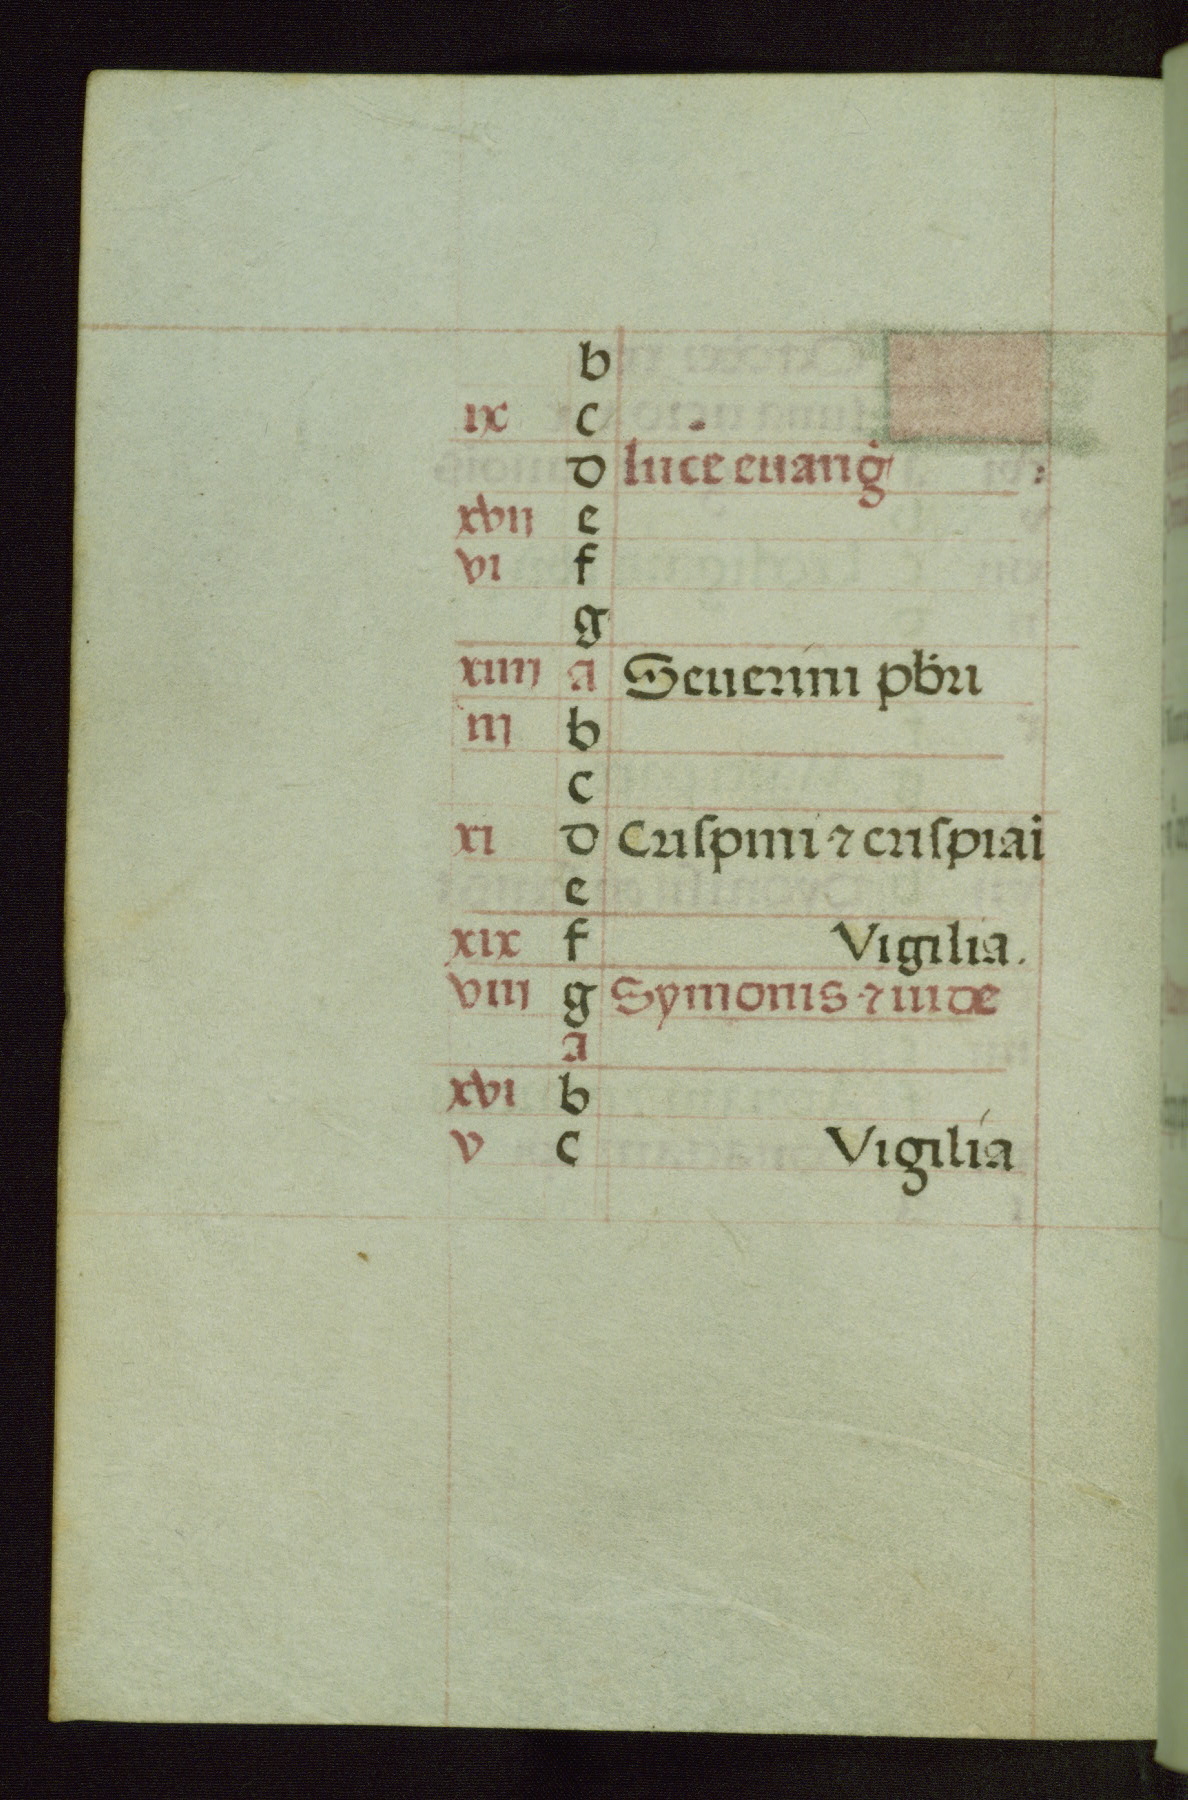 b
ix c
d luce euang
xvij e
vi f
g
xiiij a Seuerini pbri
iij b
c
xi d Crispini ⁊ crispiai
e
xix f Vigilia.
viij g Symonis ⁊ iude
a
xvi b
v c Vigilia